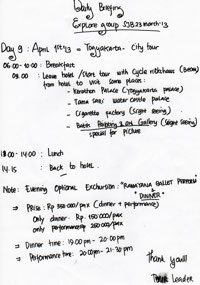 Daily Briefing
Explore group SJB 23 march '13
Day 9 : April 1st '13 = Yogyakarta - City tour
06.00 - 10.00 : Breakfast
09.00 : Leave hotel / Start tour with Cycle rickshaws (Becak)
from hotel to visit some places :
- Keraton Palace (Yogyakarta palace)
- Taman sari water castle palace
- Cigarette factory (sight seeing)
- Batik Painting & Art Gallery (sight seeing)
special for picture
13.00 - 14.00 : Lunch
14.15 : Back to hotel.
Note : Evening Optional Excursion : "RAMAYANA BALLET PERFORM"
"DINNER"
⇒ Price : Rp 350.000/pax (dinner + performance)
only dinner : Rp. 150.000/pax
only performance : Rp 250.000/pax
⇒ Dinner time : 19.00 pm - 20.00 pm
⇒ Performance time : 20.00 pm - 21.30 pm
Thank you!!
Leader